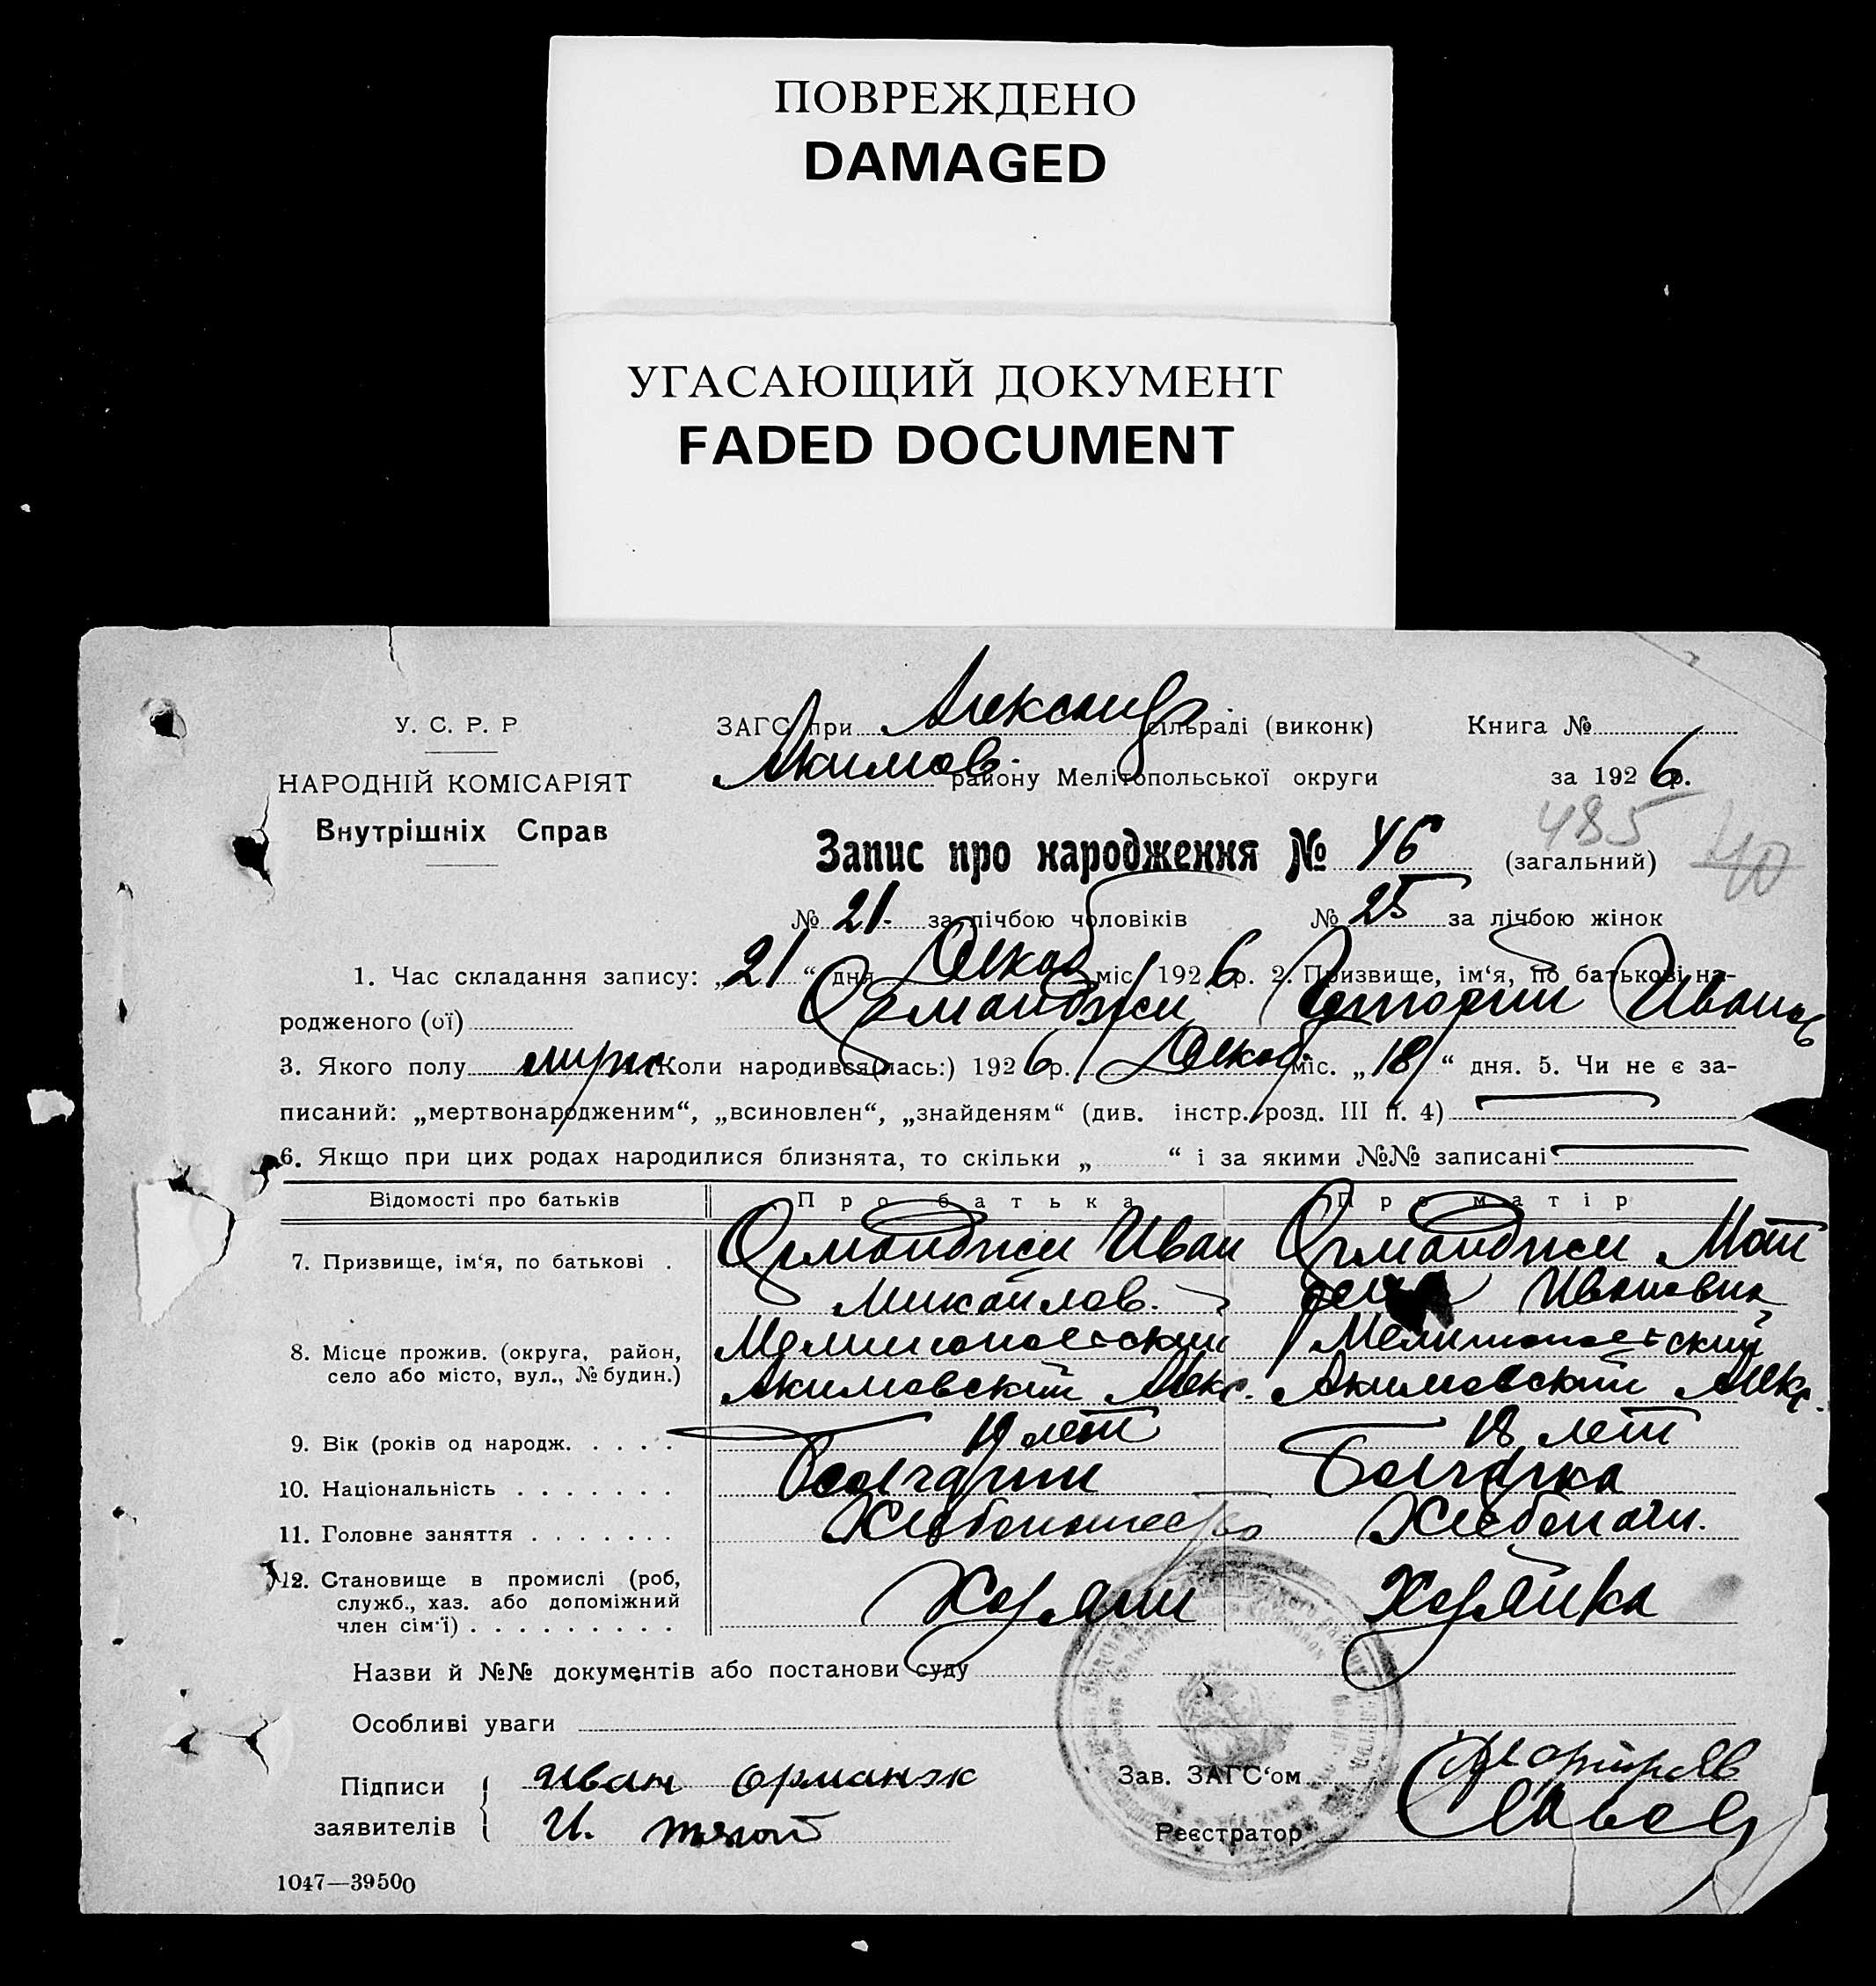 ПОВРЕЖДЕНО
DAMAGED
УГАСАЮЩИЙ ДОКУМЕНТ
FADED DOCUMENT
У. С. Р. Р
ЗАГС при Александр сільраді (виконк) Книга №
Акимов. району Мелітопольської округи за 1926 р.
НАРОДНІЙ КОМІСАРІЯТ
Внутрішніх Справ
485
Запис про народження № 46 (загальний) 40
№ 21. за лічбою чоловіків № 25 за лічбою жінок
1. Час складання запису: „21“ дня Декаб міс. 1926 р. 2. Призвище, ім‘я, по батькові на-
родженого (ої) Орманджи Иван
3. Якого полу муж Коли народився(лась:) 1926 р. Декаб міс. „18“ дня. 5. Чи не є за-
писаний: „мертвонародженим“, „всиновлен“, „знайденям“ (див. інстр. розд. III п. 4)
6. Якщо при цих родах народилися близнята, то скільки „ “ і за якими №№ записані
Відомості про батьків Про батька Про матір
7. Призвище, ім‘я, по батькові . Орманджи Иван Орманджи Мот
Михайлов. Ивановна
8. Місце прожив. (округа, район, Мелитопольский Мелитопольский
село або місто, вул., № будин.) Акимовский Алекс. Акимовский Алекс.
9. Вік (років од народж. . . . . 19 лет 18 лет
10. Національність . . . . . . . Болгарин Болгарка
11. Головне заняття . . . . . . . Хлебопашество Хлебопаш.
12. Становище в промислі (роб,
служб., хаз. або допоміжний Хозяин Хозяйка
член сім‘ї) . . . . . . . . .
Назви й №№ документів або постанови суду
Особливі уваги
Підписи Иван орманжи Зав. ЗАГС‘ом
заявителів И. Реєстратор
1047—39500